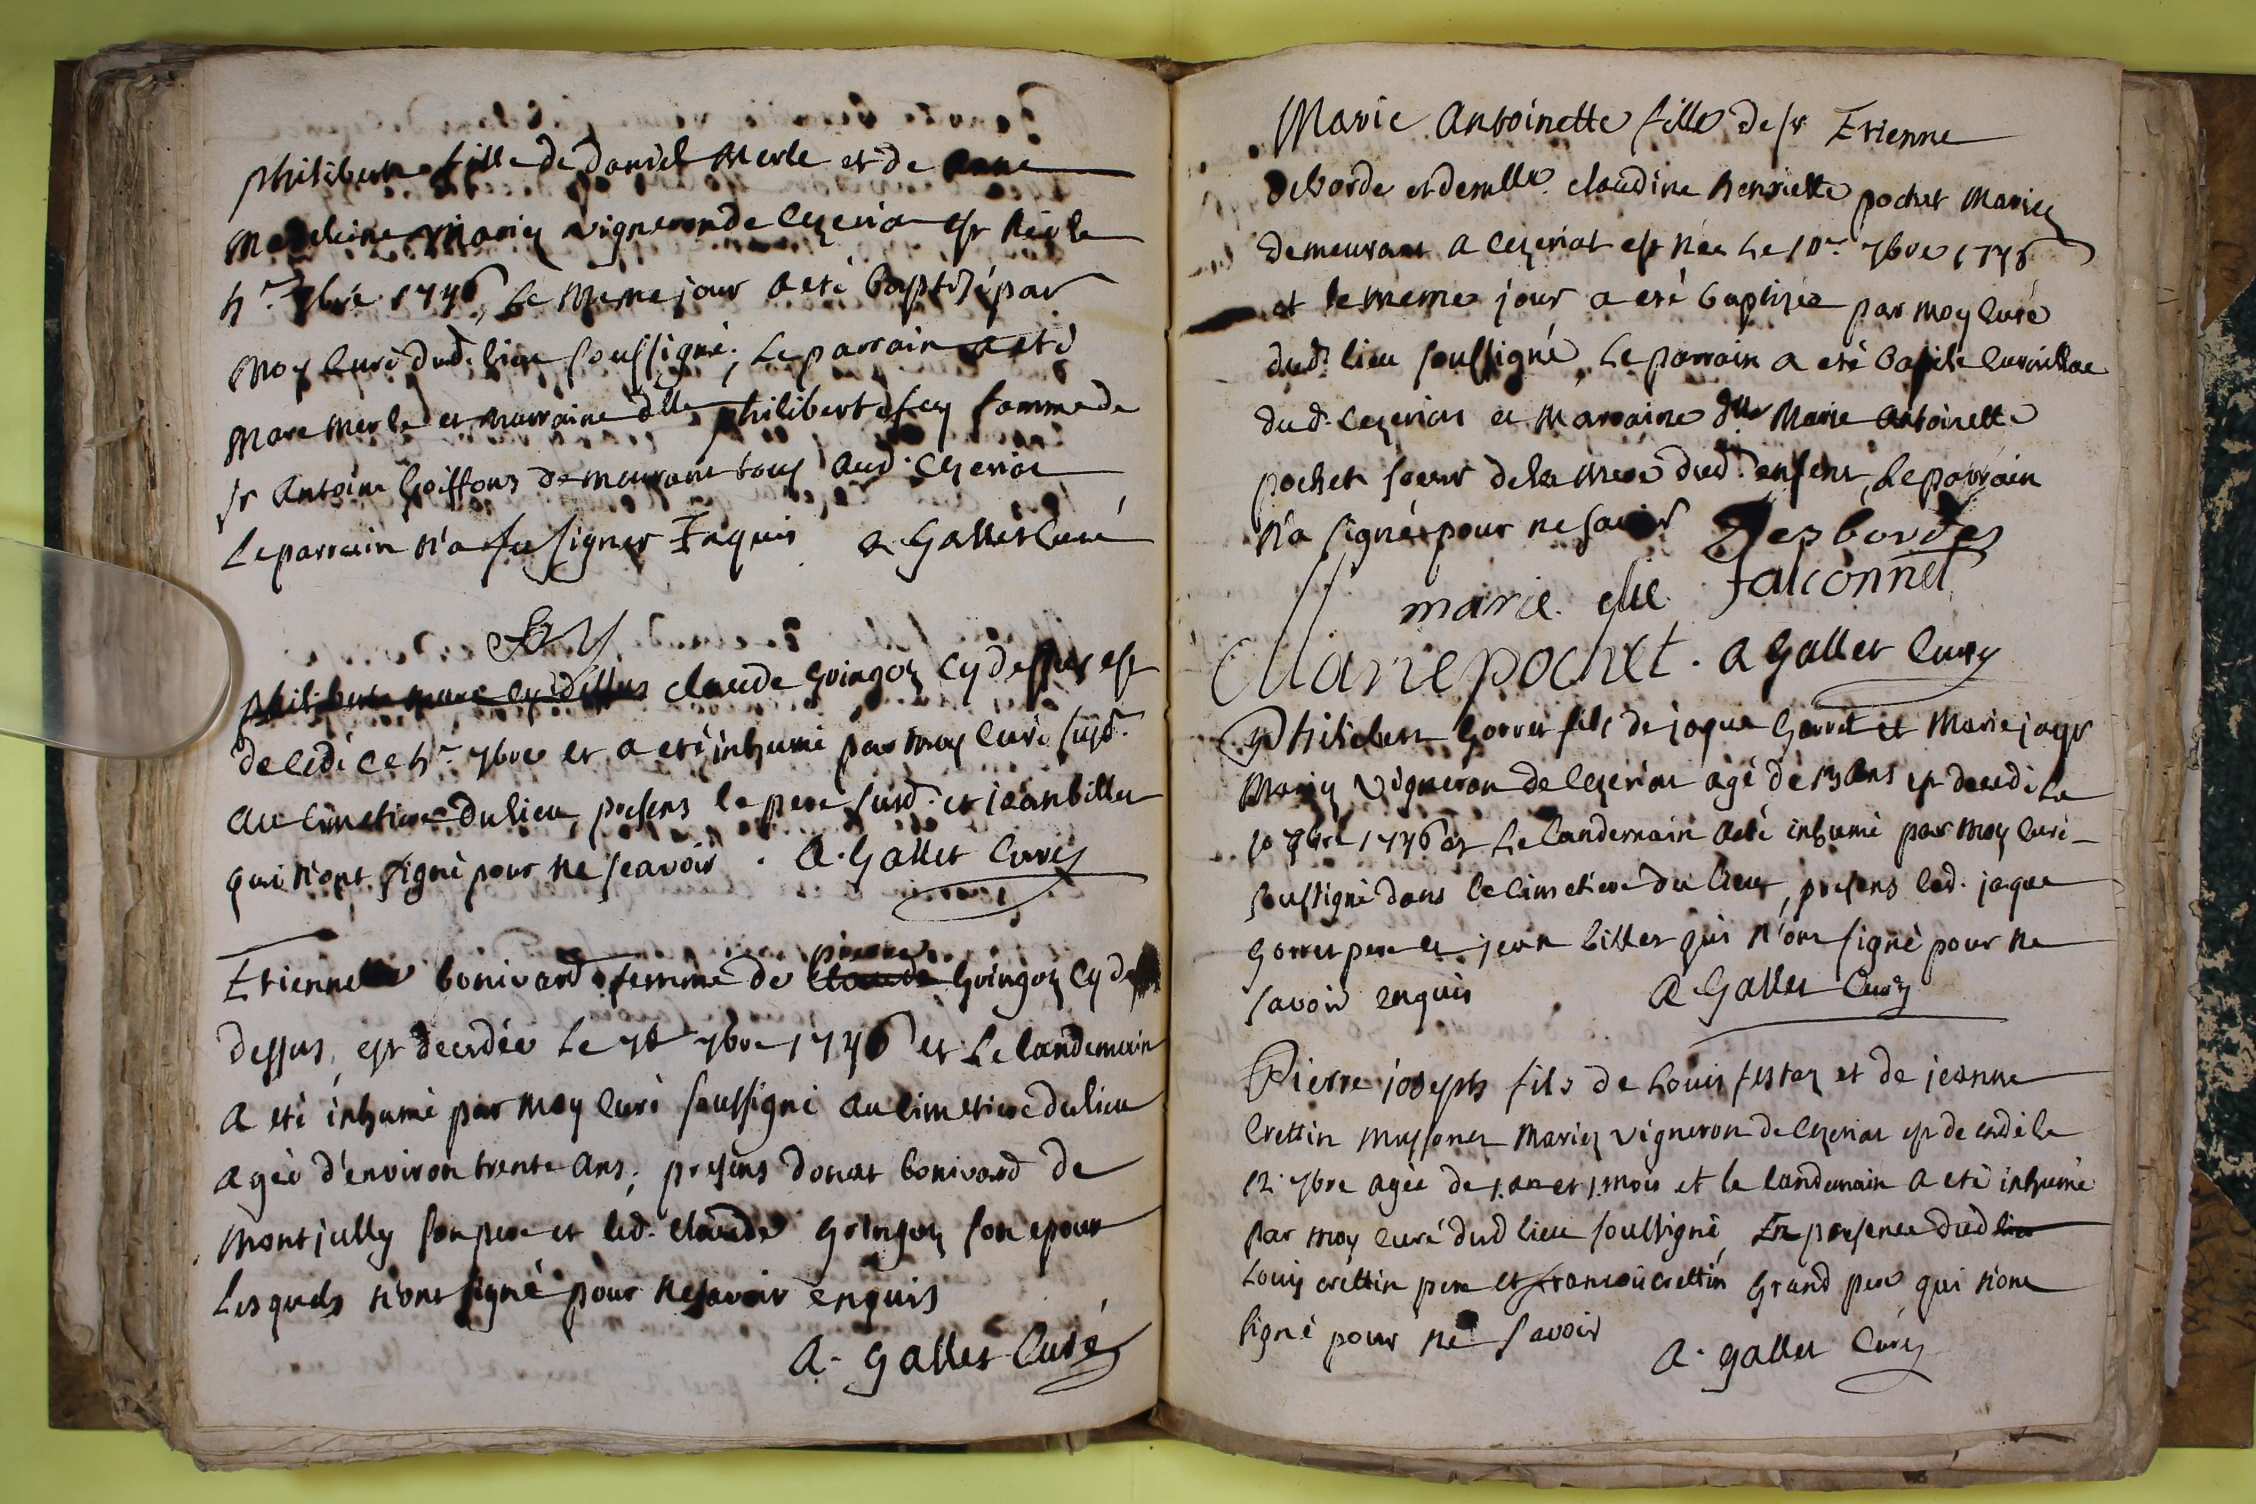 philiberte fille de daniel Merle et de Anne
Medeleine Mariez vigneron de Cezeria est née le
5e 7bre 1746 Le Meme jour a eté baptisé par
Moy Curé dud. lieu soussigné, Le parrain a eté
Marc Merle et Marraine dlle philiberte fey femme de
sr Antoine goiffon demeurant tous aud. Cezeriat
Le parrain n'a su signer Enquis a Gallet Curé
fey
philiberte marc cy dessus claude Goingoz Cy dessus est
decedé le 5e 7bre et a eté inhumé par moy Curé susd.
au Cimetiere du lieu, presens le pere susd. et jean billet
qui n'ont signé pour ne scavoir. A. Gallet Curez
pierre
Etiennette bonivard femme de claude Goingoz Cy de
dessus, est decedée Le 7e 7bre 1746 et Le landemain
a eté inhumé par moy Curé soussigné au Cimetiere du lieu
agée d'environ trente ans, presens donat bonivard de
Montjully son pere et led. Claude Goingoz son epoux
Lesquels n'ont signé pour ne savoir enquis
A. Gallet Curé
Marie Antoinette fille de sr Etienne
deborde et demlle claudine henriette pochet Mariez
demeurant a Cezeriat est née Le 10e 7bre 1746
et le meme jour a eté baptisée par moy Curé
dud. lieu soussigné, Le parrain a eté basile
dud. Cezeriat et Marraine dlle Marie Antoinette
pochet soeur de la mere dud. enfent, Le parrain
n'a signé pour ne savoir Desbordes
marie elie Falconnet
Marie pochet. A Gallet Curez
Philibert Gorret fils de jaque Gorret et Marie jayr
Mariez Vigneron de Cezeriat agé de 13 ans est decedé Le
10 7bre 1746 et Le landemain a eté inhumé par moy Curé
soussigné dans le Cimetiere du lieu, presens led. jaque
Gorret pere et jean billet qui n'ont signé pour ne
savoir enquis A Gallet Curez
Pierre joseph fils de Louis festaz et de jeanne
Crettin Mariez Vigneron de Cezeriat est decedé le
12. 7bre agée de 1. an et 1. mois et le landemain a eté inhumé
par moy Curé dud lieu soussigné, En presence dud lieu
Louis crettin pere et francois crettin Grand pere qui n'ont
signé pour ne savoir A. Gallet Curez